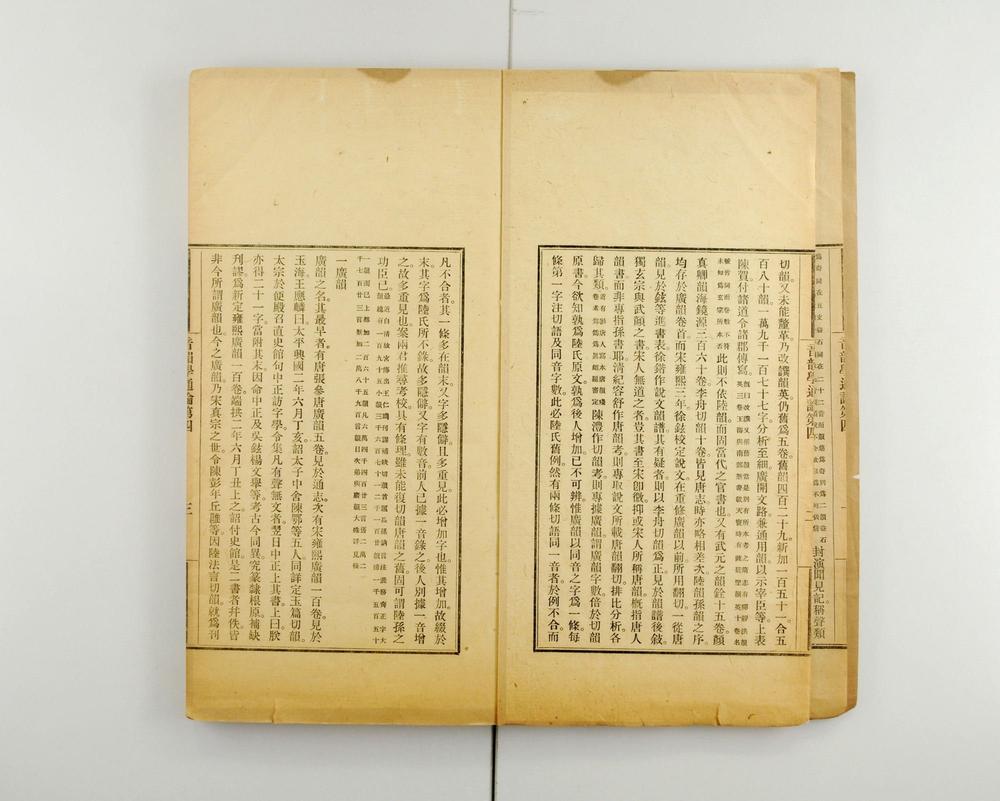 切韻。又未能釐革。乃改譔韻英。仍舊爲五卷。舊韻四百二十九。新加一百五十一。合五
百八十韻。一萬九千一百七十七字。分析至細。廣開文路。兼通用韻。以示宰臣等。上表
陳賀。付諸道令諸郡傳寫。
此則不依陸韻。而固當代之官書也。又有武元之韻銓十五卷。顏
眞卿韻海鏡源三百六十卷。李舟切韻十卷。皆見唐志。時亦略相差次。陸韻孫韻之序。
均存於廣韻卷首。而宋雍熙三年。徐鉉校定說文。在重修廣韻以前。所用翻切。一從唐
韻。見於鉉等進書表。徐鍇作說文韻譜。其有疑者。則以李舟切韻爲正。見於韻譜後敍。
獨玄宗與武顏之書。宋人無道之者。豈其書至宋卽微。抑或宋人所稱唐韻。槪指唐人
韻書。而非專指孫書耶。淸紀容舒作唐韻考。則專取說文所載唐韻翻切。排比分析。各
歸其類。
陳澧作切韻考。則專據廣韻。謂廣韻字數。倍於切韻
原書。今欲知孰爲陸氏原文。孰爲後人增加。已不可辨。惟廣韻以同音之字爲一條。每
條第一字注切語及同音字數。此必陸氏舊例。然有兩條切語同一音者。於例不合。而
音韻學通論第四
封演聞見記稱聲類
凡不合者。其一條多在韻末。又字多隱僻。且多重見。此必增加字也。惟其增加。故綴於
末。其字爲陸氏所不錄。故多隱僻。又字有數音。前人已據一音錄之。後人別據一音增
之。故多重見也。案兩君推尋考校。具有條理。雖未能復切韻唐韻之舊。固可謂陸孫之
功臣已。
一廣韻
廣韻之名。其最早者。有唐張參唐廣韻五卷。見於通志。次有宋雍熙廣韻一百卷。見於
玉海。王應麟曰。太平興國二年六月丁亥。詔太子中舍陳鄂等五人。同詳定玉篇切韻。
太宗於便殿召直史館句中正訪字學。令集凡有聲無文者。翌日中正上其書。上曰。朕
亦得二十一字。當附其末。因命中正及吳鉉楊文舉等。考古今同異。究篆隸根原。補缺
刊謬。爲新定雍熙廣韻一百卷。端拱二年六月丁丑上之。詔付史館。是二書者。幷佚。皆
非今所謂廣韻也。今之廣韻。乃宋眞宗之世。令陳彭年丘雝等。因陸法言切韻。就爲刊
音韻學通論第四
三